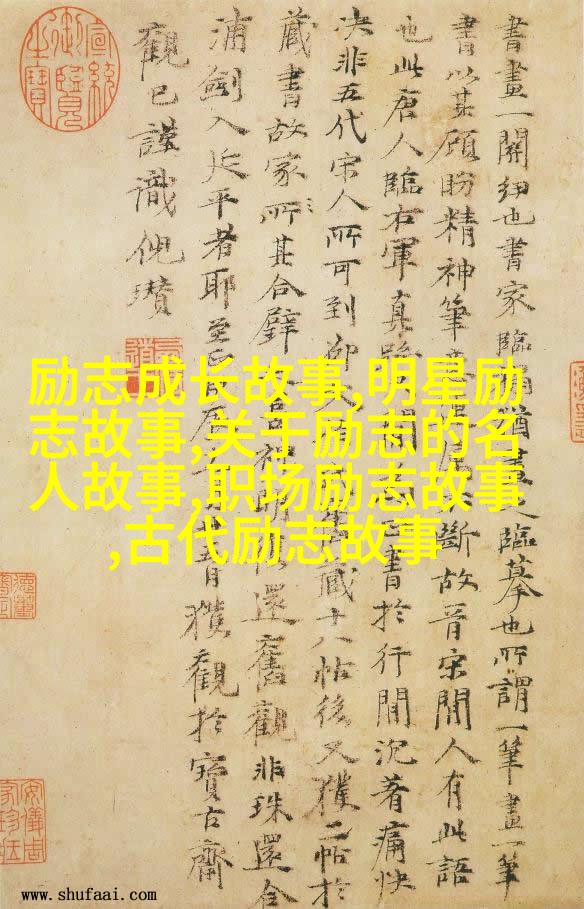 書畫一關紐也書家臨猶畫之臨摹也所謂一筆畫一筆
書以其顧盼精神筆意斷故晉宋間人有此語
也此唐人臨右軍真書於行間沉著痛快
決非五代宋人所可到藏十八帖後又獲二帖於
藏書故家所其合璧神明還舊觀非珠還合
浦劍入延平者耶至獲觀於寶古齋
觀已謹識倪瓚
宣統御覽之寶
安儀周家珍藏
励志成长故事,明星励
志故事,关于励志的名
人故事,职场励志故事
,古代励志故事
www.shufaai.com